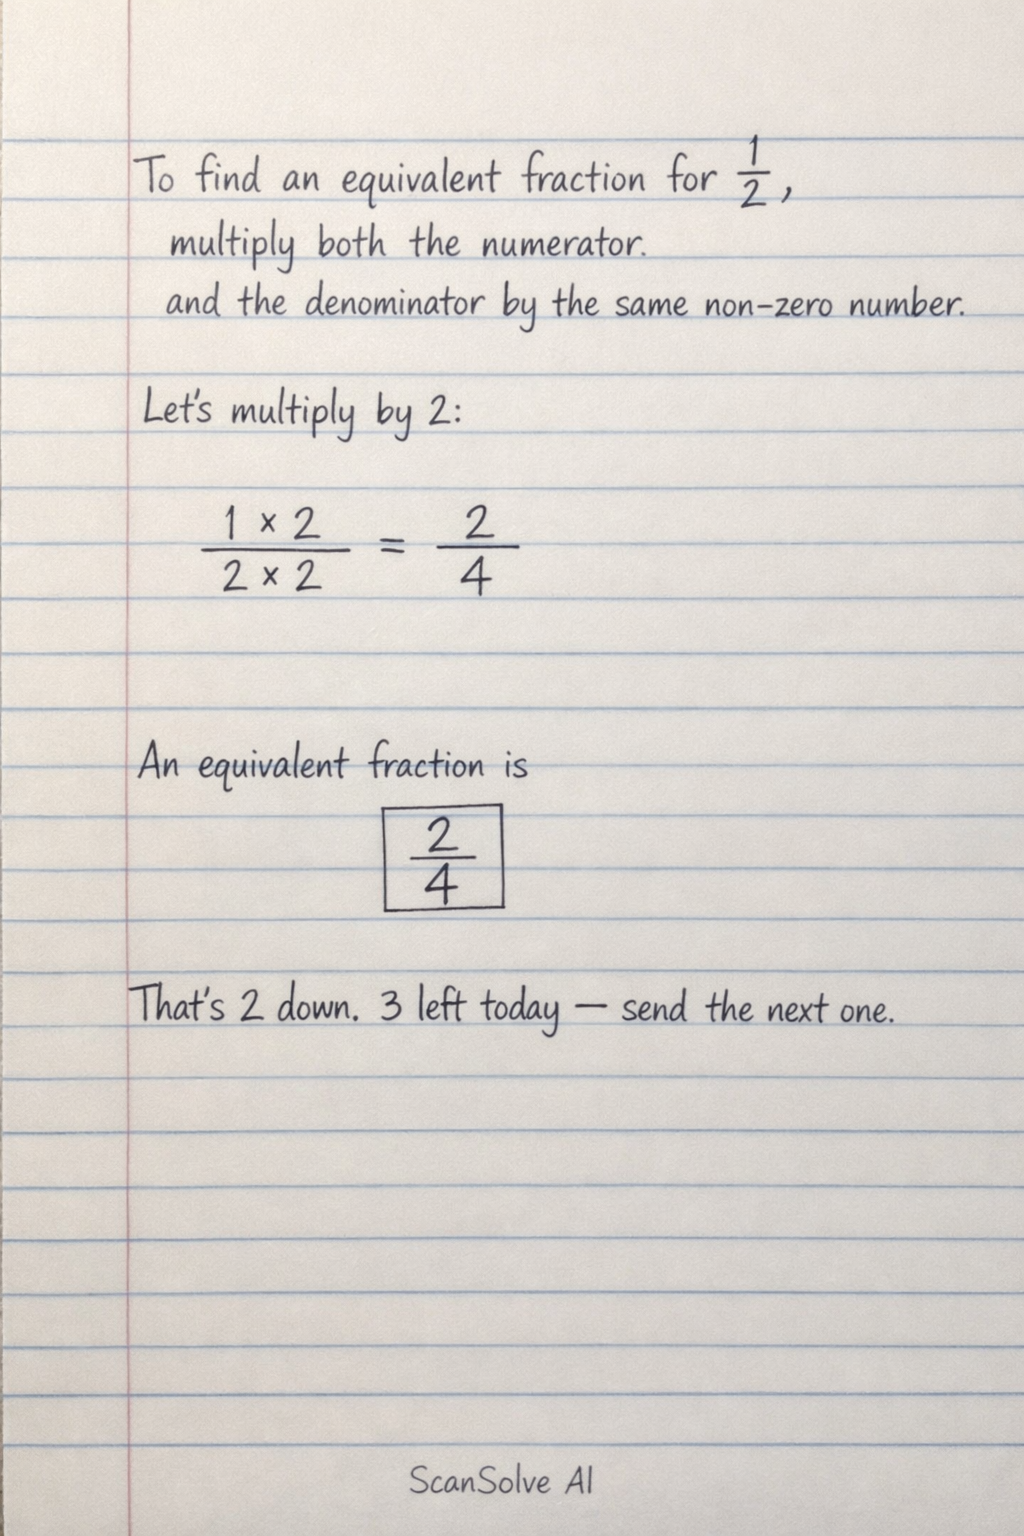 To find an equivalent fraction for 1/2,
multiply both the numerator.
and the denominator by the same non-zero number.
Let's multiply by 2:
1 × 2 / 2 × 2 = 2/4
An equivalent fraction is
2/4
That's 2 down. 3 left today — send the next one.
ScanSolve AI